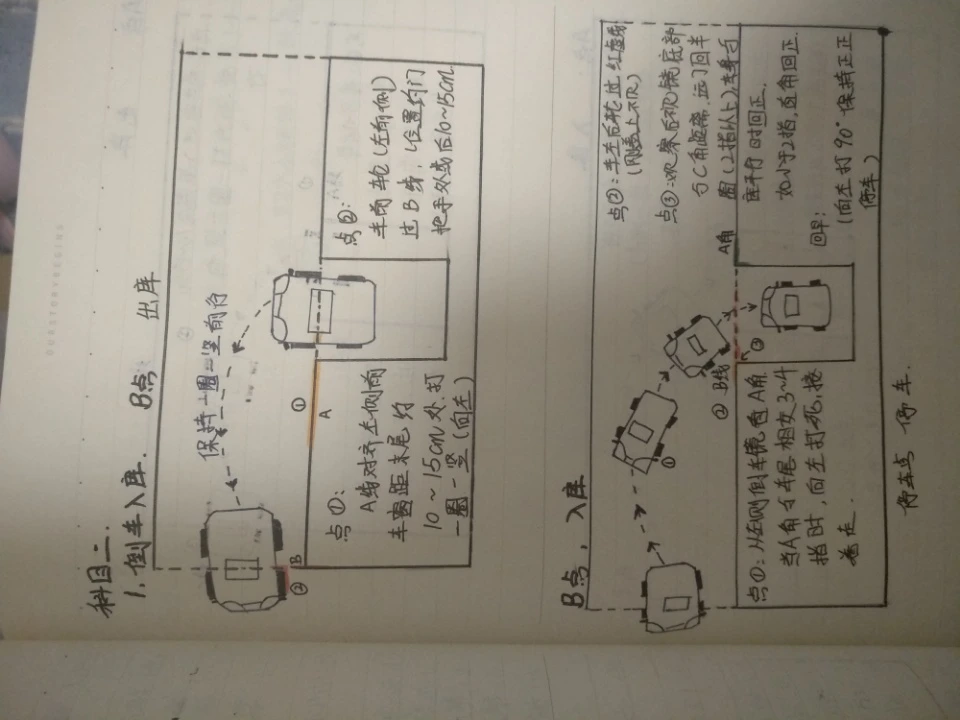 科目二.
1. 倒车入库.
B点 出库
保持一圈一竖前行
①
A
点①:
A线对齐左侧前
车窗距末尾约
10～15cm处.打
一圈一竖(向左)
B
②
点②:
车前轮(左前侧)
过B线,位置约门
把手处或后10～15cm
B点,入库
点①:从左侧倒车镜看A角
当A角与车尾相女3～4
指时,向左打死,接
着走.
①
② B线
③
A角
点②:车左后轮过红虚线
(刚过上不久)
点③:观察后视镜底部
与C角距离,远了回半
圈(2指以上),车身与
库平行时回正.
如小于2指,直角回正.
回早:
(向左打90°保持正正
停车)
停车点 停车.